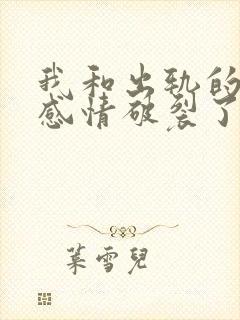 我和出轨的
感情破裂了
葉雪兒